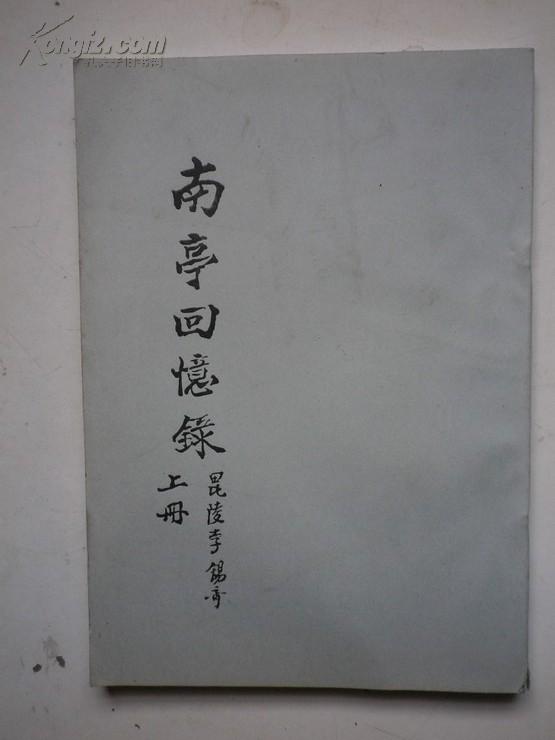 Kongfz.com
孔夫子旧书网
南亭回憶錄
上冊
毘陵李錫